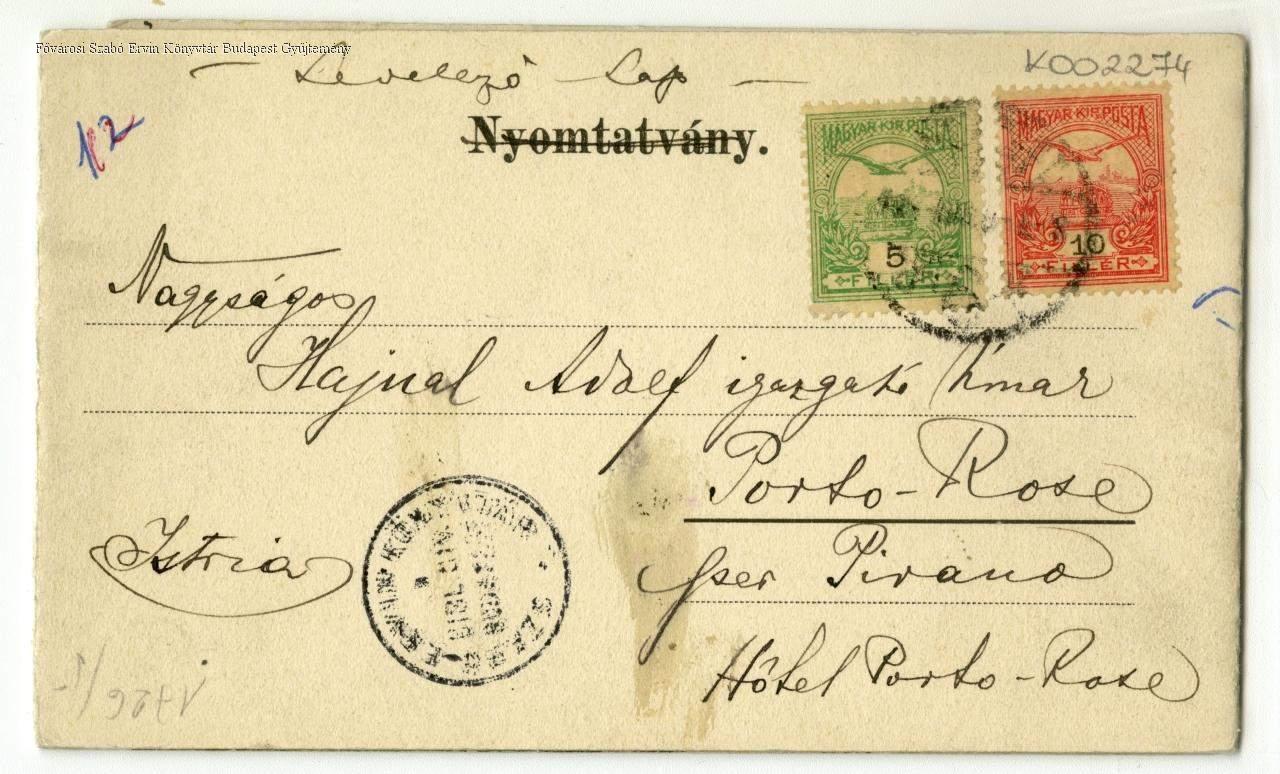 Fővárosi Szabó Ervin Könyvtár Budapest Gyűjtemény
K002274
— Levelező Lap —
12
Nyomtatvány.
MAGYAR·KIR·POSTA
5
FILLÉR
MAGYAR·KIR·POSTA
10
FILLÉR
Nagyságos
Hajnal Adolf igazgató Úrnak
Porto-Rose
per Pirano
Istria
SZABÓ ERVIN KÖNYVTÁR
Hôtel Porto-Rose